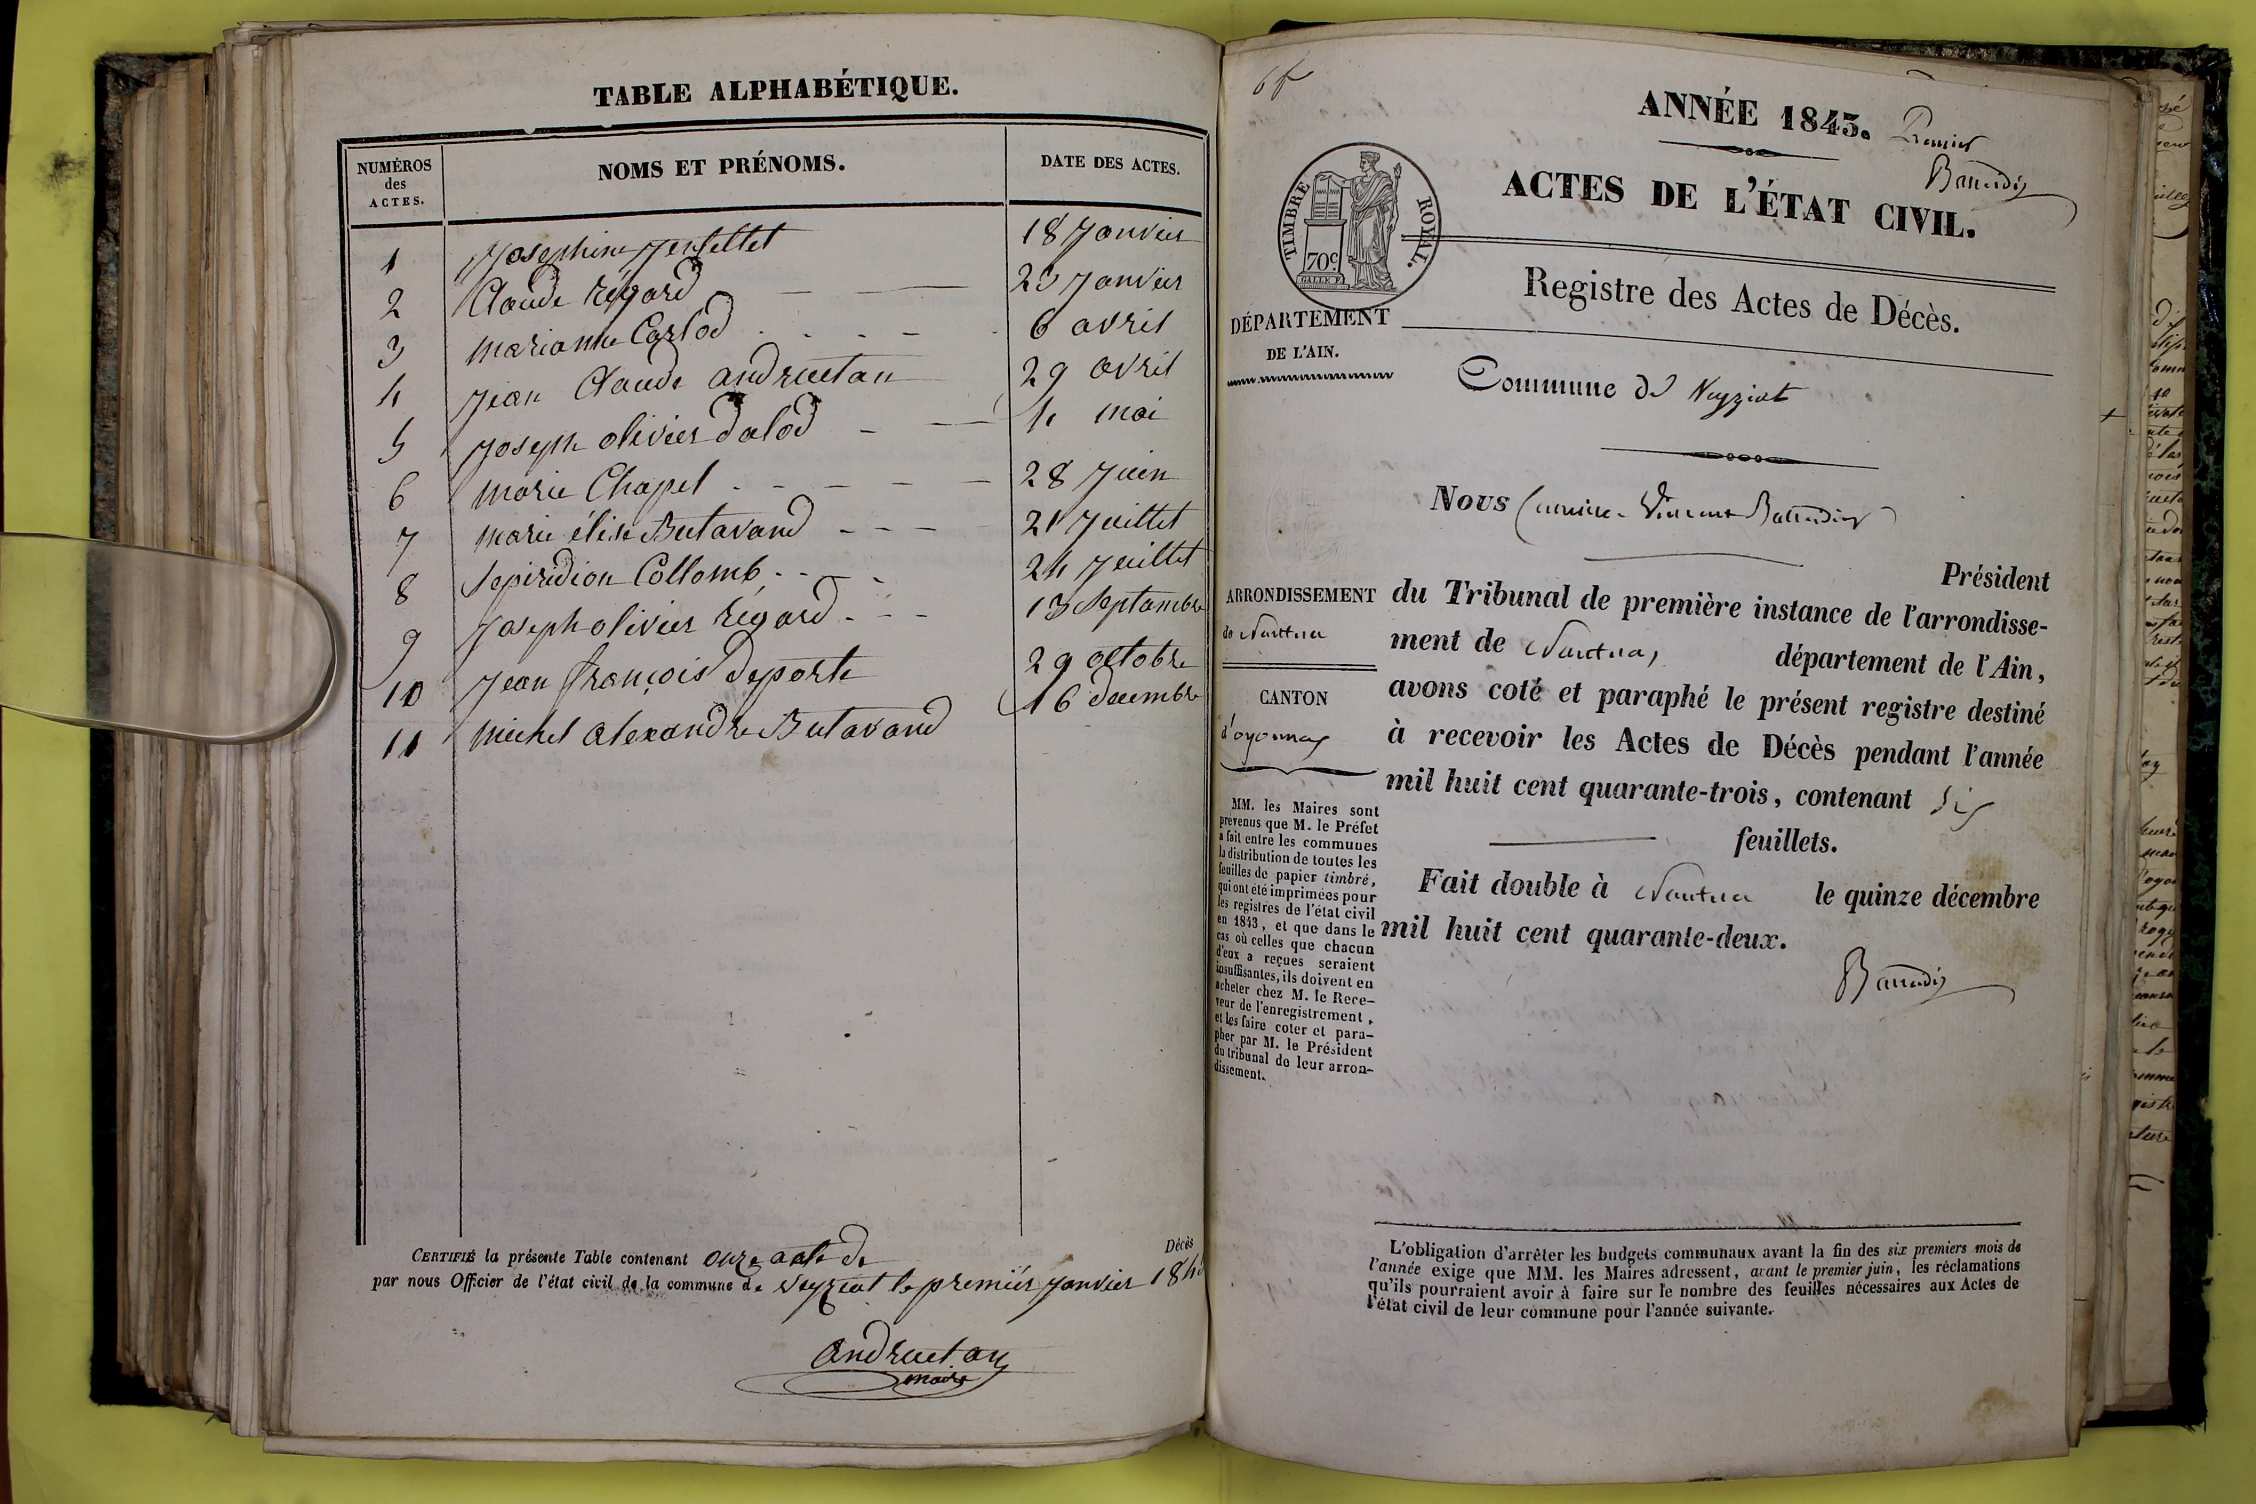 TABLE ALPHABÉTIQUE.
NUMÉROS
des
ACTES.
NOMS ET PRÉNOMS.
DATE DES ACTES.
1 Josephine 18 Janvier
2 Claude Régard 23 Janvier
3 marianne Carlod 6 avril
4 Jean Claude andruetan 29 avril
5 Joseph olivier dalod 4 mai
6 marie Chapel 28 Juin
7 marie élise Butavand 21 Juillet
8 Sepiridion Collomb 24 Juillet
9 Joseph olivier régard 13 Septambre
10 Jean françois deporte 29 octobre
11 michel alexandre Butavand 16 decembre
CERTIFIÉ la présente Table contenant onze acte de Décès
par nous Officier de l'état civil de la commune de Veyziat le premier Janvier 184
andruetan
maire
ANNÉE 1843.
Premier
Baunadis
TIMBRE ROYAL.
70c
ACTES DE L'ÉTAT CIVIL.
Registre des Actes de Décès.
DÉPARTEMENT
DE L'AIN.
Commune de Veyziat
Nous Vincent
Président
ARRONDISSEMENT
de Nantua
CANTON
d'oyonnax
du Tribunal de première instance de l'arrondisse-
ment de Nantua, département de l'Ain,
avons coté et paraphé le présent registre destiné
à recevoir les Actes de Décès pendant l'année
mil huit cent quarante-trois, contenant six
feuillets.
Fait double à Nantua le quinze décembre
mil huit cent quarante-deux.
MM. les Maires sont
prévenus que M. le Préfet
a fait entre les communes
la distribution de toutes les
feuilles de papier timbré,
qui ont été imprimées pour
les registres de l'état civil
en 1843, et que dans le
cas où celles que chacun
d'eux a reçues seraient
insuffisantes, ils doivent en
acheter chez M. le Rece-
veur de l'enregistrement,
et les faire coter et para-
pher par M. le Président
du tribunal de leur arron-
dissement.
L'obligation d'arrêter les budgets communaux avant la fin des six premiers mois de
l'année exige que MM. les Maires adressent, avant le premier juin, les réclamations
qu'ils pourraient avoir à faire sur le nombre des feuilles nécessaires aux Actes de
l'état civil de leur commune pour l'année suivante.